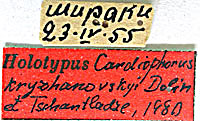 шираки
23·IV·55
Holotypus Cardiophorus
kryzhanovskyi Dolin
et Tschantladze, 1980